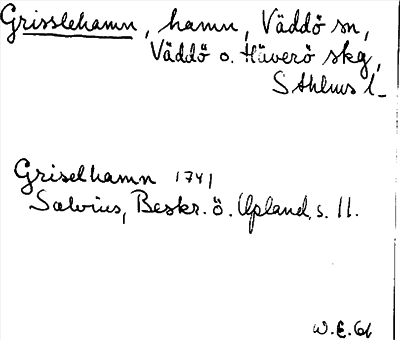 Grisslehamn, hamn, Väddö sn,
Väddö o. Häverö skg,
Sthlms l.
Griselhamn 1741
Salvius, Beskr. ö. Upland, s. 11.
W.E. 61